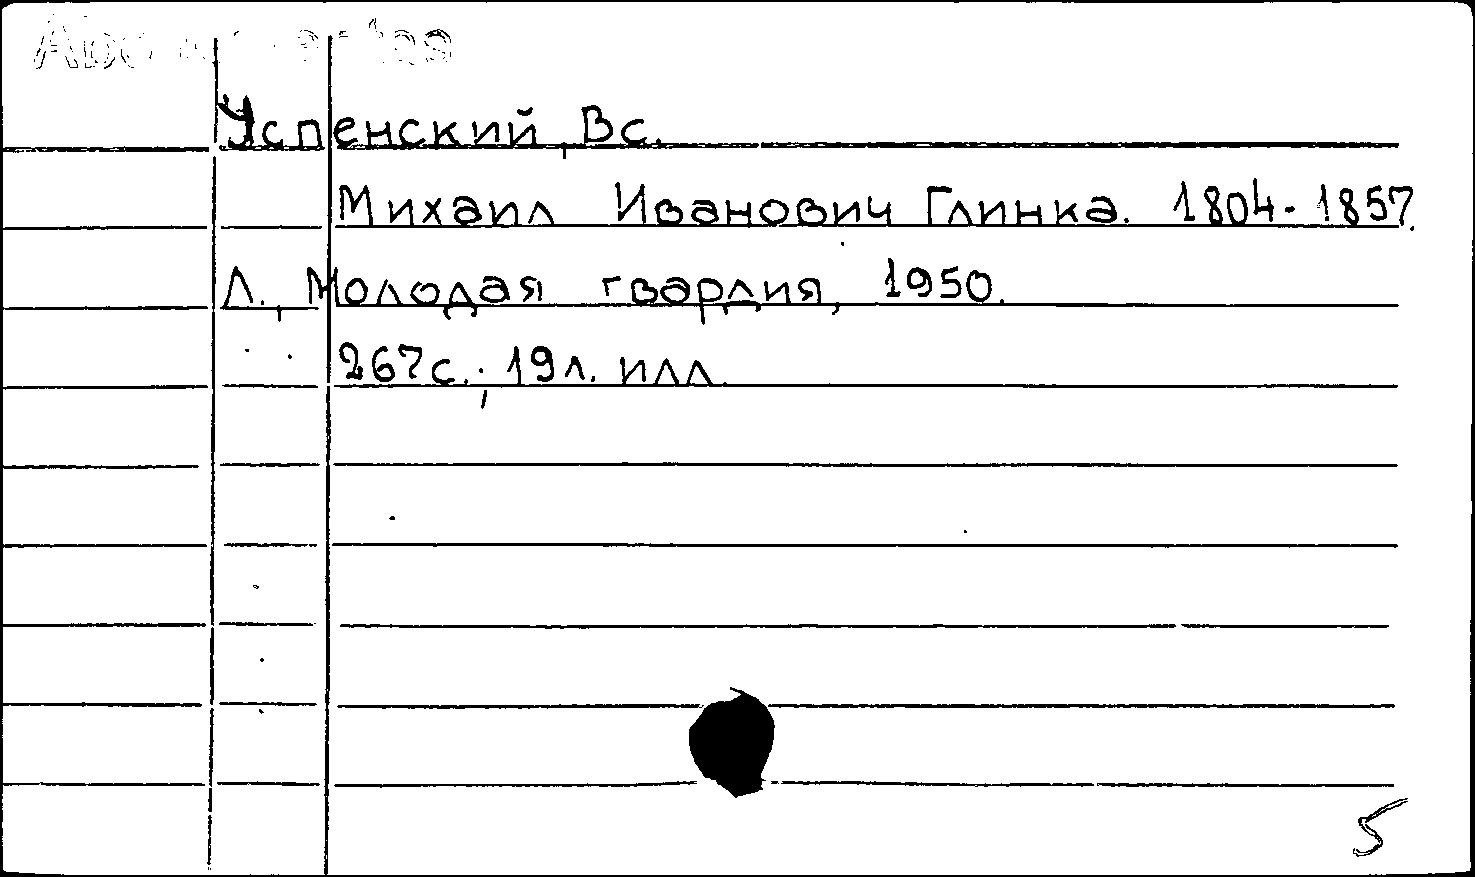 Успенский, Вс.
Михаил Иванович Глинка. 1804-1857.
Л., Молодая гвардия, 1950.
267с.; 19л. илл.
5